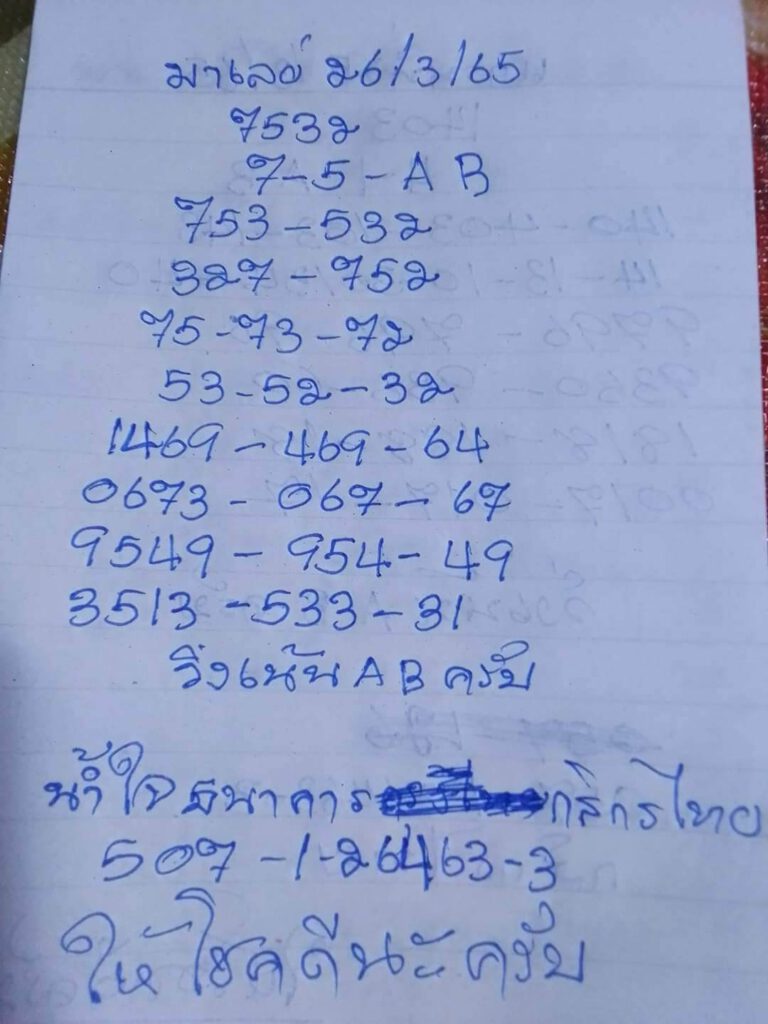 มาเลย์ 26/3/65
7532
7-5-A B
753-532
327-752
75-73-72
53-52-32
1469-469-64
0673-067-67
9549-954-49
3513-533-31
วิ่งเน้น A B ครับ
น้ำใจ ธนาคาร กสิกรไทย
507-1-26463-3
ให้โชคดีนะครับ